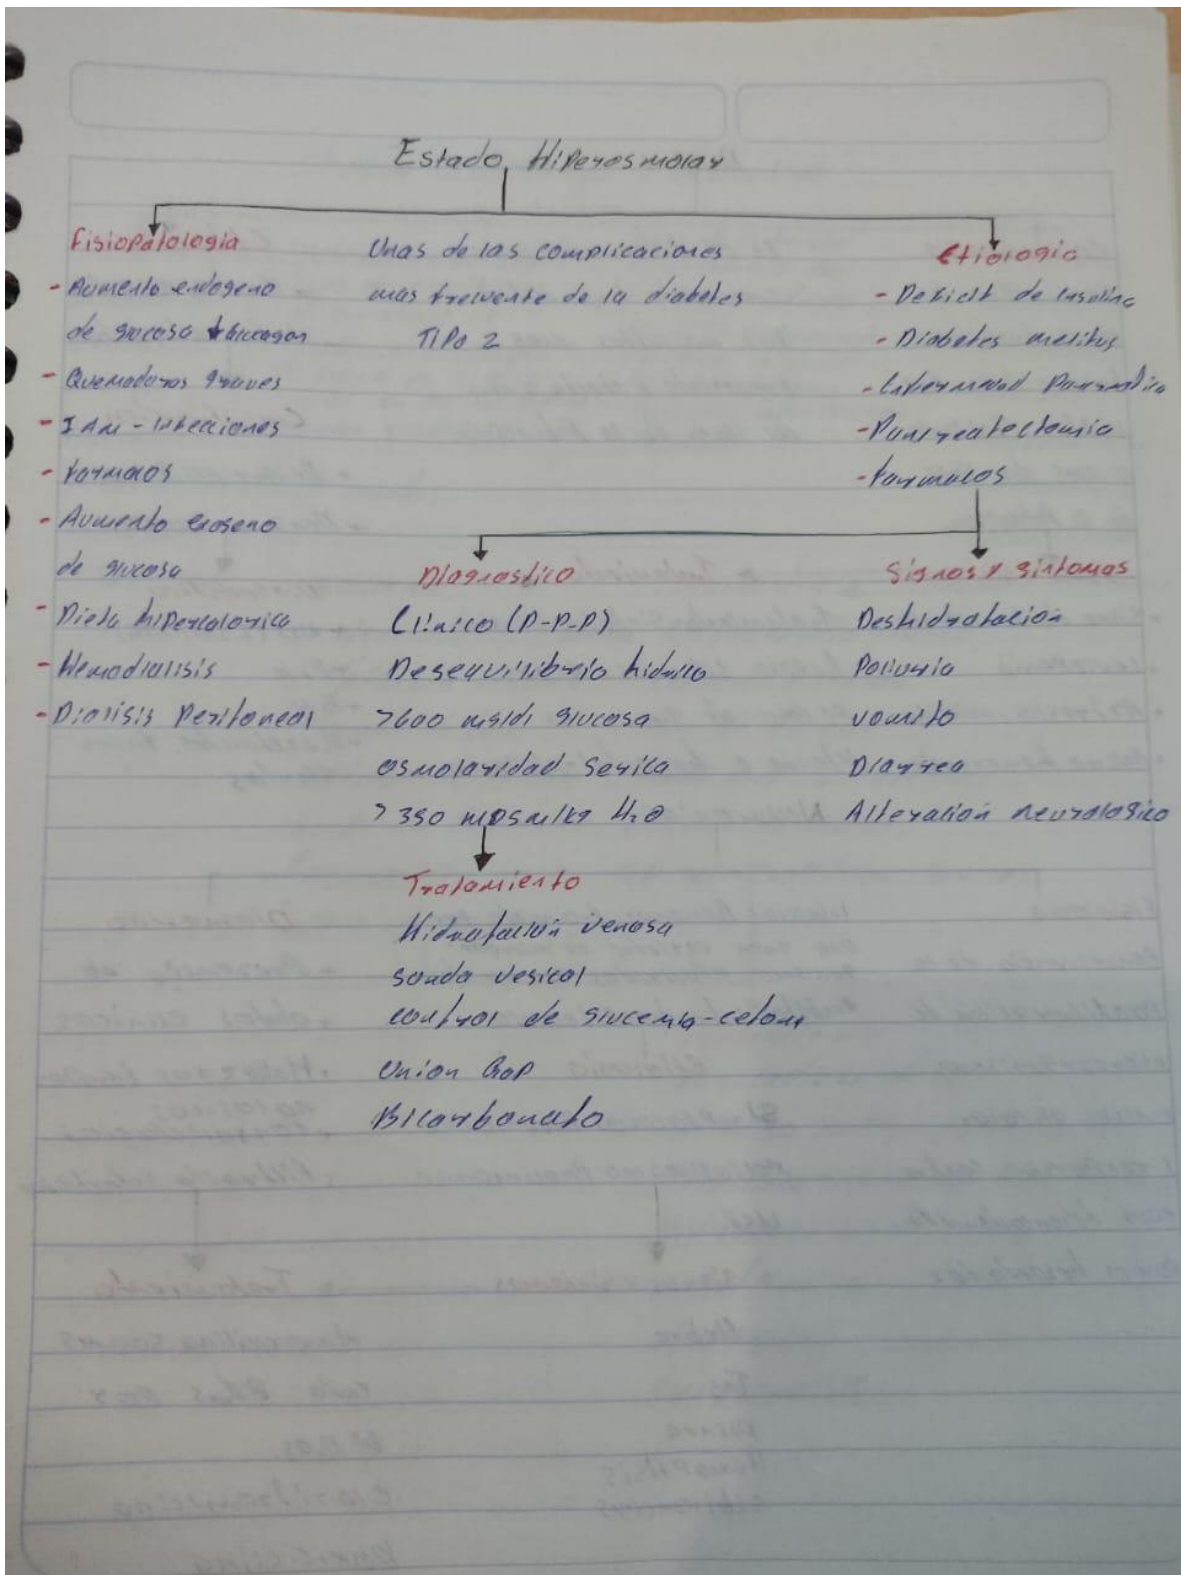 Estado Hiperosmolar
Fisiopatologia
- Aumento endogeno
de glucosa + Glucagon
- Quemaduras graves
- IAM - infecciones
- Farmacos
- Aumento exogeno
de glucosa
- Dieta hipercalorica
- Hemodialisis
- Dialisis Peritoneal
Unas de las complicaciones
mas frecuente de la diabetes
TIPO 2
Etiologia
- Deficit de insulina
- Diabetes melitus
- Enfermedad Pancreatica
- Pancreatectomia
- Farmacos
Diagnostico
Clínico (P-P-P)
Desequilibrio hidrico
>600 mg/dl glucosa
osmolaridad Serica
> 350 mOsm/kg H₂O
Signos y sintomas
Deshidratacion
Poliuria
vomito
Diarrea
Alteración neurologico
Tratamiento
Hidratación venosa
sonda vesical
control de glucemia-cetona
Union Gap
Bicarbonato